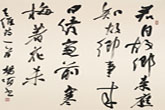 君自故鄉來應
知故鄉事來
日綺窗前寒
梅著花未
王維詩一首